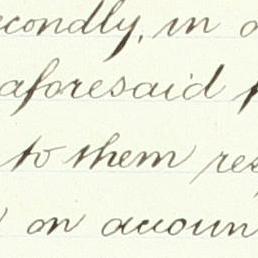 econdly, in
aforesaid
to them res
on accoun